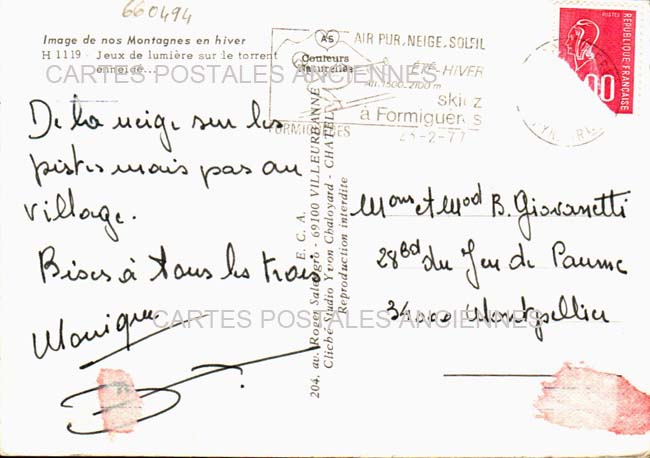 660494
Image de nos Montagnes en hiver
H 1119 - Jeux de lumière sur le torrent
enneigé...
CARTES POSTALES ANCIENNES
De la neige sur les
pistes mais pas au
village.
Bises à tous les trois
Monique
CARTES POSTALES ANCIENNES
AS
Couleurs
Naturelles
AIR PUR, NEIGE, SOLEIL
ÉTÉ-HIVER
Alt. 1500-2100 m
skiez
à Formiguères
FORMIGUERES
-2-77
POSTES
RÉPUBLIQUE FRANÇAISE
00
E. C. A.
204, av. Roger Salengro - 69100 VILLEURBANNE
Cliché Studio Yvon Chaloyard - CHATEL
Reproduction interdite
Mons et Mad B. Giovanetti
28 Bd du Jeu de Paume
34000 Montpellier